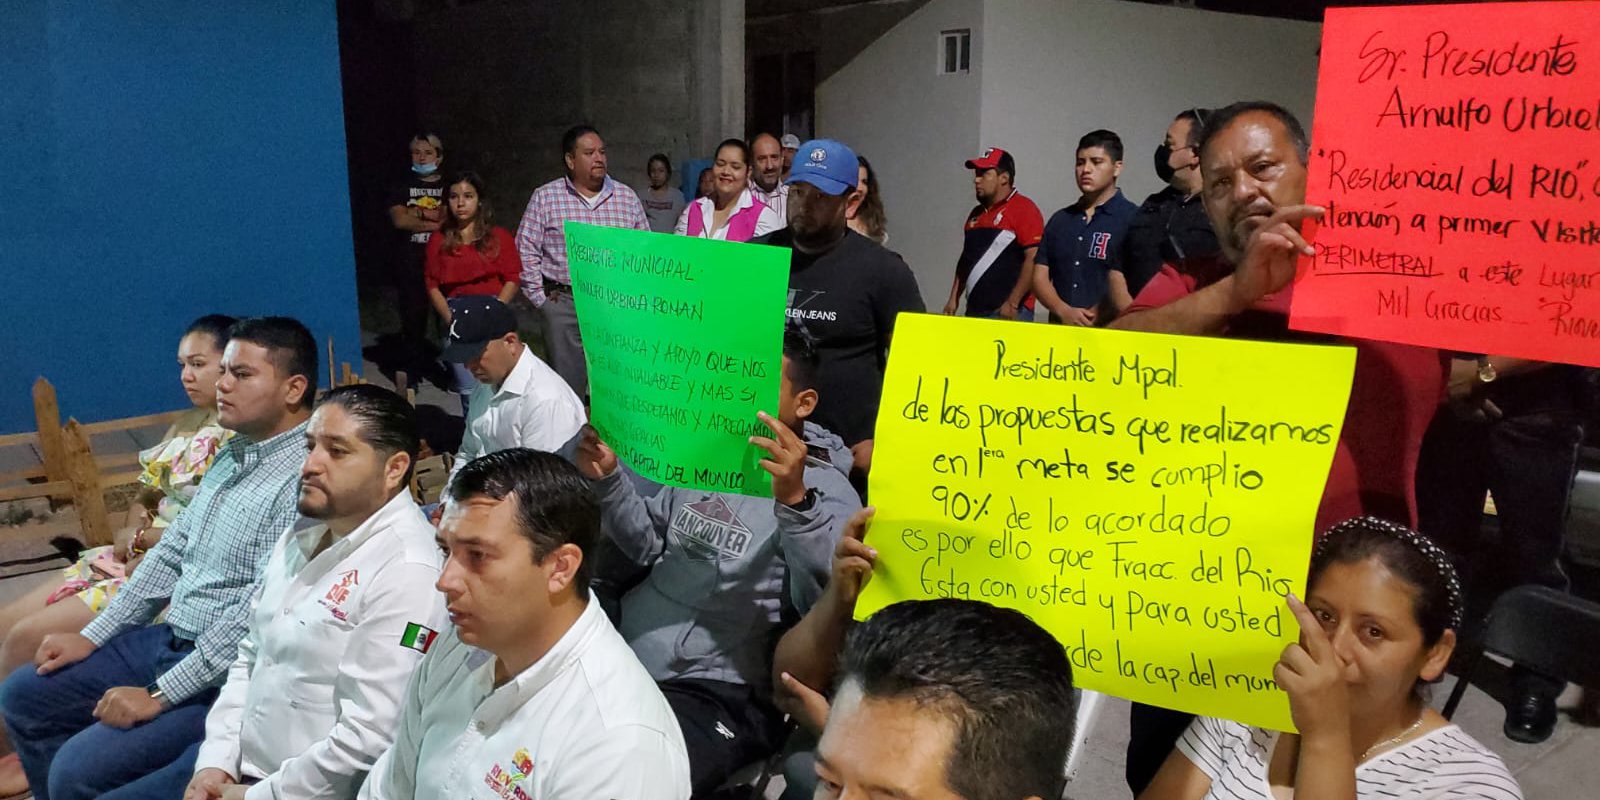 PRESIDENTE MUNICIPAL.
ARNULFO URBIOLA ROMAN
CONFIANZA Y APOYO QUE NOS
INVALUABLE Y MAS SI
QUE RESPETAMOS Y APRECIAMOS
GRACIAS
LA CAPITAL DEL MUNDO
Presidente Mpal.
de las propuestas que realizamos
en 1era meta se cumplio
90% de lo acordado
es por ello que Fracc. del Rio
Esta con usted y Para usted
de la cap. del mun
Sr. Presidente
Arnulfo Urbiol
"Residencial del RIO",
atención a primer Visita
PERIMETRAL a este Lugar
Mil Gracias
KLEIN JEANS
VANCOUVER
H
DIF
RIOVERDE